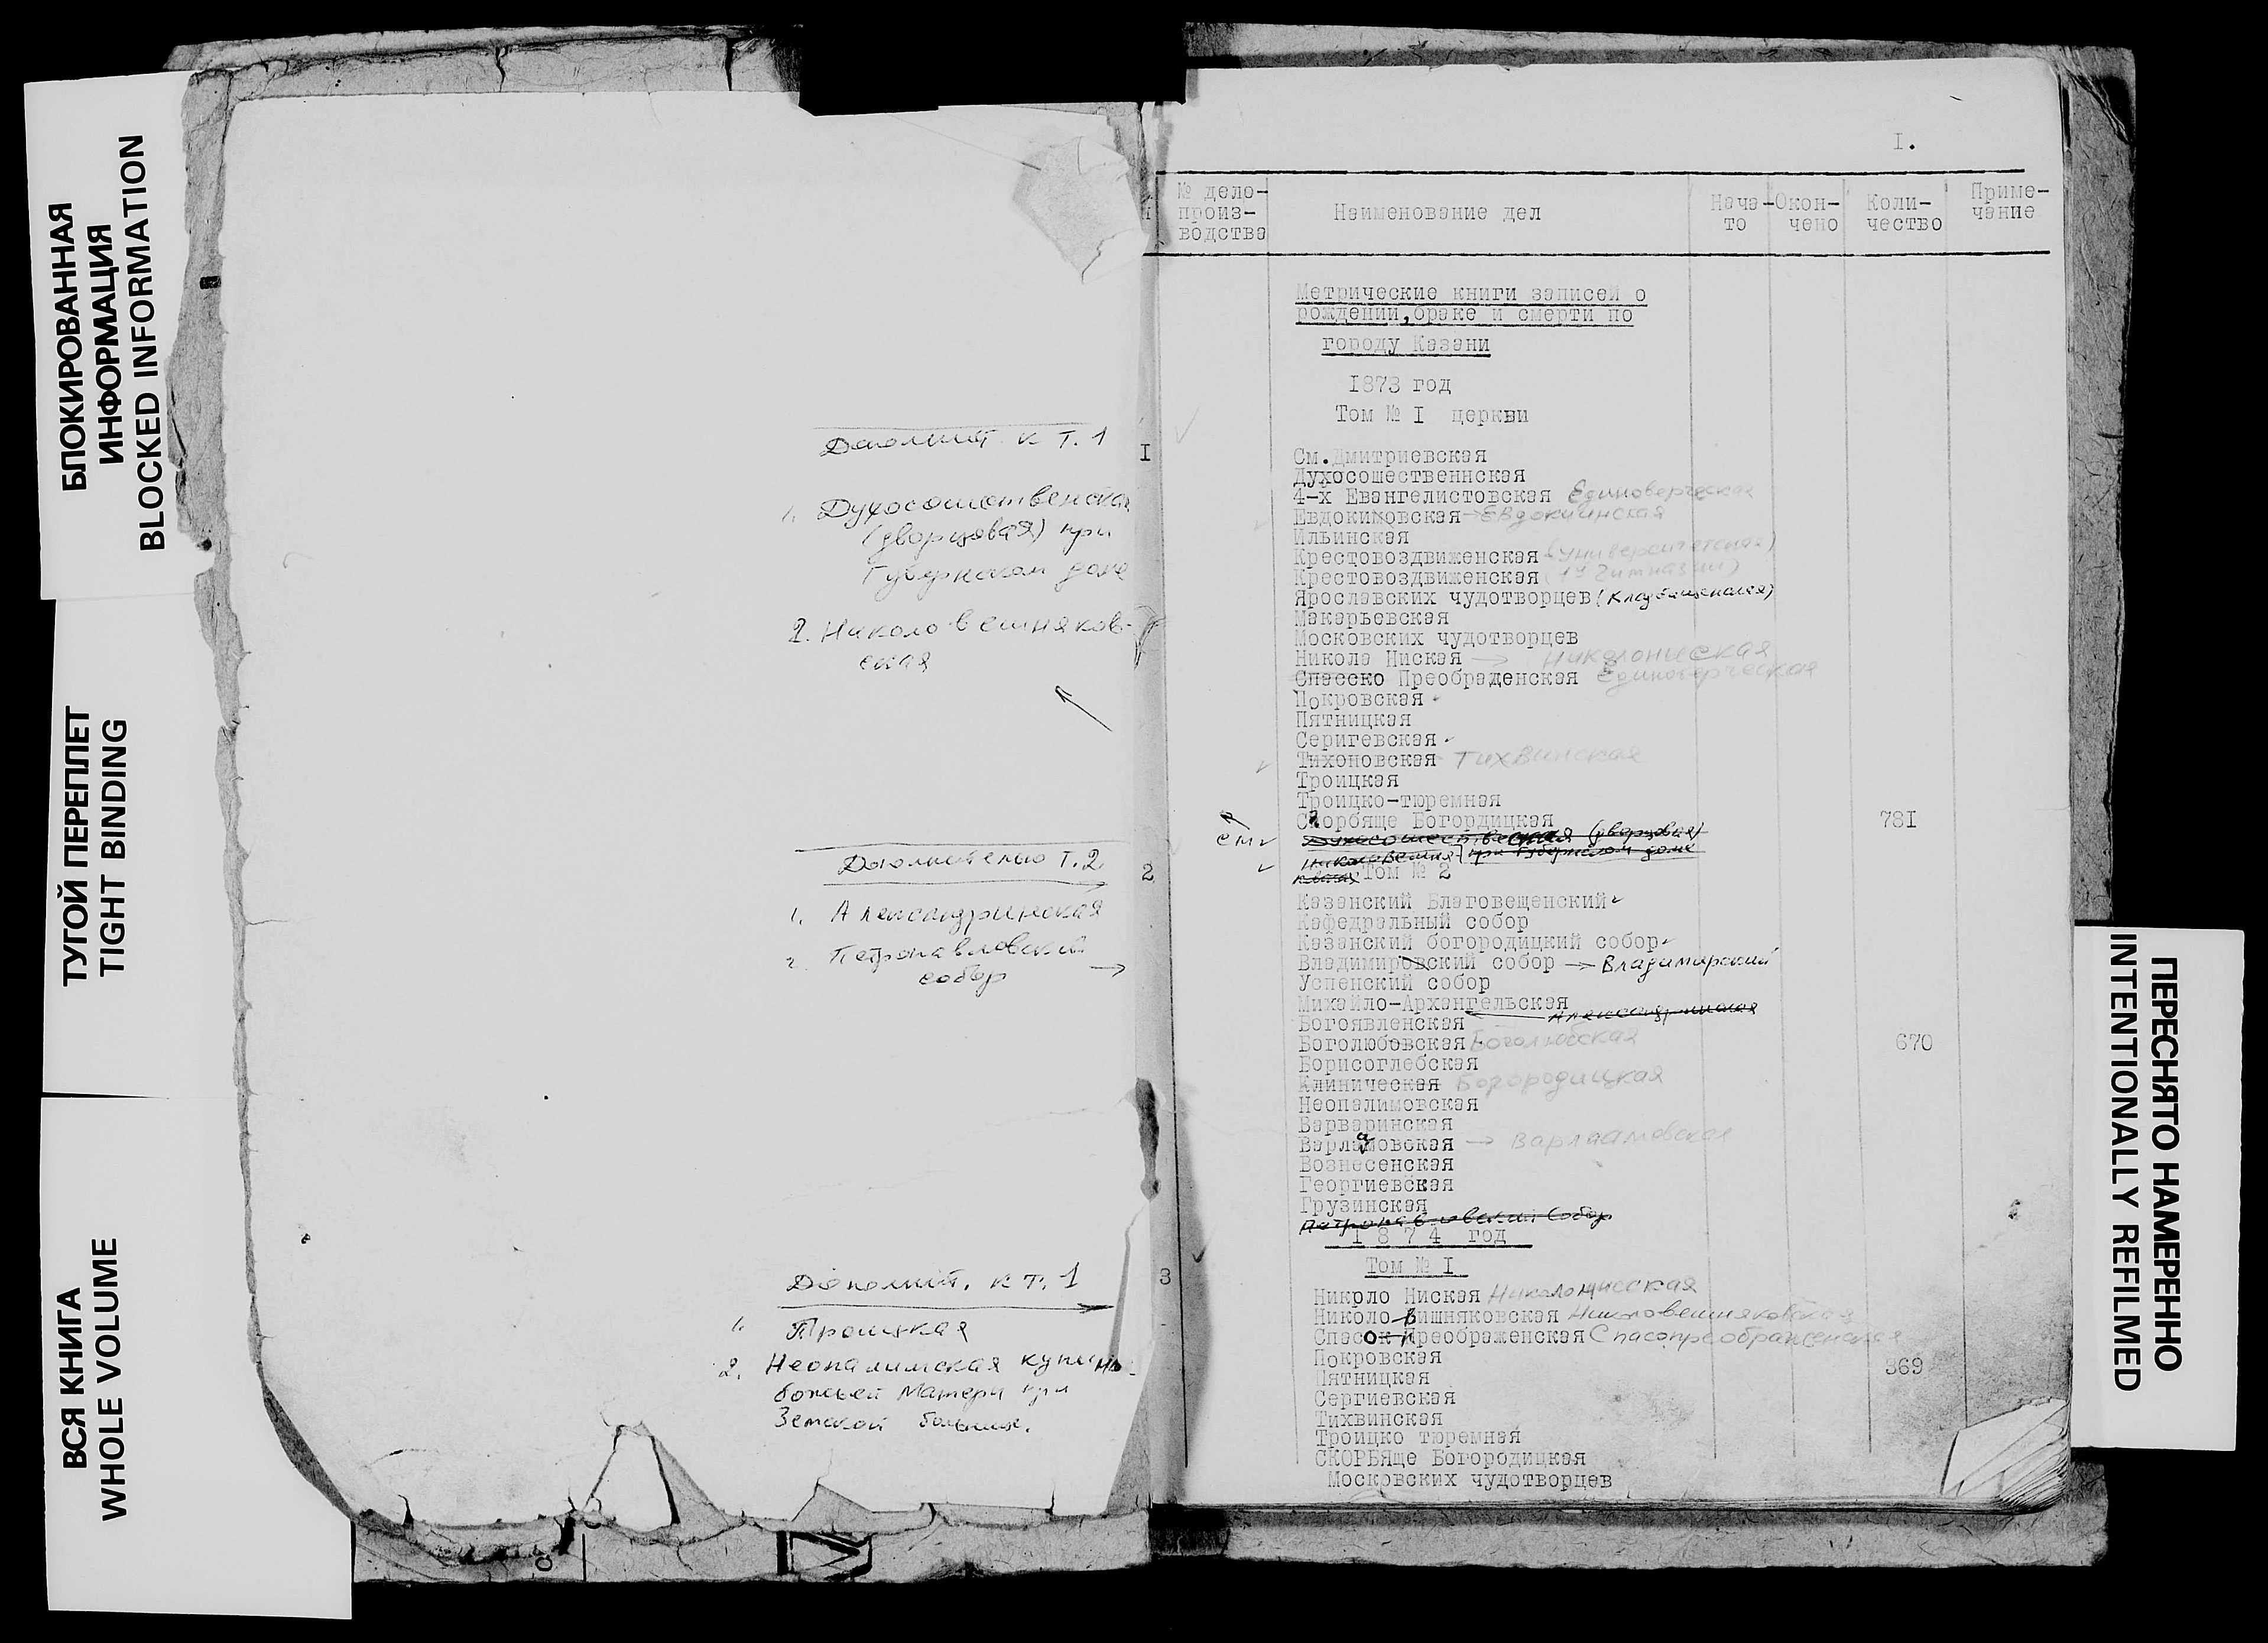 БЛОКИРОВАННАЯ
ИНФОРМАЦИЯ
BLOCKED INFORMATION
ТУГОЙ ПЕРЕПЛЕТ
TIGHT BINDING
ВСЯ КНИГА
WHOLE VOLUME
Дополнит. к т. 1
1. Духосошественская
(дворцовая) при
Губернском доме
2. Николо-вешняков-
ская
Дополнительно т. 2
1. Александринская
2. Петропавловский
собор
Дополнит. к т. 1
1. Троицкая
2. Неопалимская купино-
божьей Матери при
Земской больнице.
I.
№ дело-
произ-
водства
Наименование дел
Нача-
то
Окон-
чено
Коли-
чество
Приме-
чание
Метрические книги записей о
рождении, браке и смерти по
городу Казани
I873 год
I
Том № I церкви
См.Дмитриевская
Духосошественнская
4-х Евангелистовская Единоверческая
Евдокимовская → Евдокиинская
Ильинская
Крестовоздвиженская (университетская)
Крестовоздвиженская (1й гимназии)
Ярославских чудотворцев (Кладбищенская)
Макарьевская
Московских чудотворцев
Никола Ниская → Николониская
Спасско Преобраденская Единоверческая
Покровская
Пятницкая
Серигевская
Тихоновская Тихвинская
Троицкая
Троицко-тюремная
Скорбяще Богордицкая 78I
см Духосошественская (дворцовая)
Николовешня- при Губернском доме
2 Том № 2
Казанский Благовещенский
Кафедральный собор
Казанский богородицкий собор
Владимировский собор → Владимирский
Успенский собор
Михайло-Архангельская
Александринская
Богоявленская
Боголюбовская Боголюбская 670
Борисоглебская
Клиническая Богородицкая
Неопалимовская
Варваринская
Варламовская → Варлаамовская
Вознесенская
Георгиевская
Грузинская
Петропавловский Собор
I 8 7 4 год
3 Том № I
Никрло Ниская Николониская
Николо-Вишняковская Николовешняковская
Спасок Преображенская Спасопреображенская
Покровская 869
Пятницкая
Сергиевская
Тихвинская
Троицко тюремная
СКОРБЯще Богородицкая
Московских чудотворцев
ПЕРЕСНЯТО НАМЕРЕННО
INTENTIONALLY REFILMED